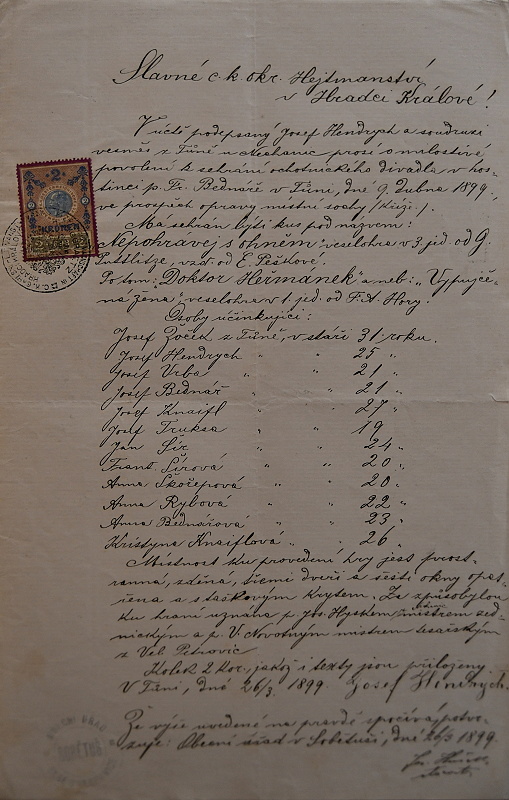 Slavné c. k. okr. Hejtmanství
v Hradci Králové!
V úctě podepsaný Josef Hendrych a soudruzi
vesměs z Tůně u Nechanic prosí o milostivé
povolení k sehrání ochotnického divadla v hos-
tinci p. Fr. Bednář v Tůni, dne 9. Dubna 1899.
ve prospěch opravy místní sochy /Kříž./.
Má sehrán býti kus pod názvem:
"Nepohrávej s ohněm" veselohra v 3. jed. od G.
Puttlitze, vzd. od E. Peškové.
Potom: "Doktor Heřmánek" aneb: "Vypůjče-
ná žena", veselohra v 1. jed. od F. A. Hory.
Osoby účinkující:
Josef Zoček z Tůně, v stáří 31 roku.
Josef Hendrych " " 25 "
Josef Vrba " " 21 "
Josef Bednář " " 21 "
Josef Knaifl " " 27 "
Josef Truksa " " 19 "
Jan Šír " " 24 "
Frant. Šírová " " 20 "
Anna Skořepová " " 20 "
Anna Rybová " " 22 "
Anna Bednářová " " 23 "
Kristyna Knaiflová " " 26 "
Místnost ku provedení hry jest prost-
ranná, zděná, třemi dveři a šesti okny opat-
řena a taškovým krytem. Za způsobylou
ku hraní uznána p. Jos. Hyskem mistrem zed-
nickým a p. V. Novotným mistrem tesařským
z Vel. Petrovic
Kolek 2 kor., jakož i texty jsou přiloženy
V Tůni, dne 26/3. 1899. Josef Hendrych.
Že výše uvedené na pravdě spočívá, potvr-
zuje: Obecní úřad v Sobětuši, dne 26/3 1899
2
KRONEN